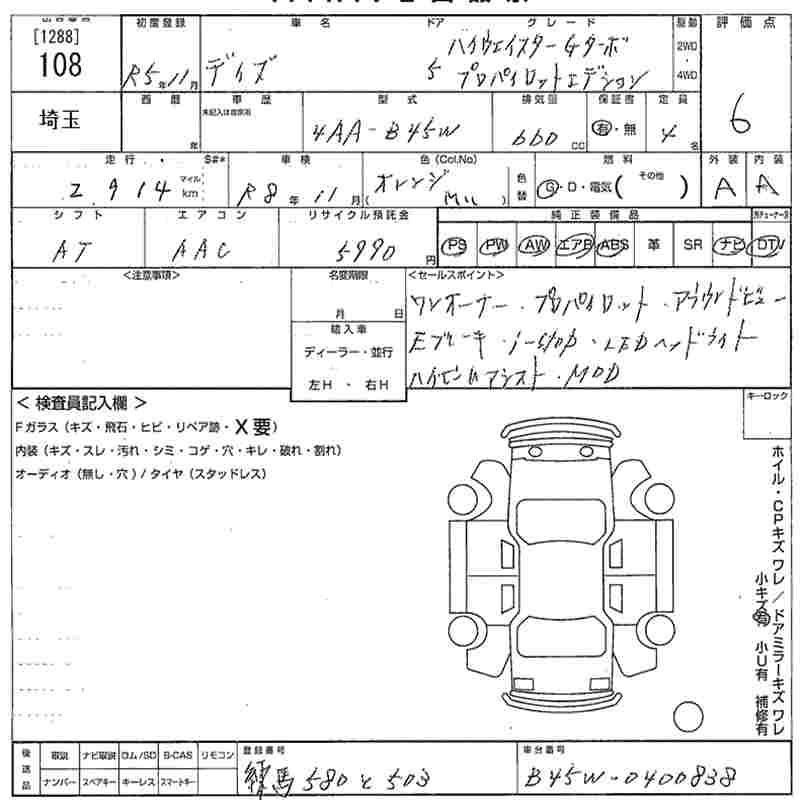 [1288]
108
埼玉
初度登録
R5年11月
車名
デイズ
ドア
5
グレード
ハイウェイスターGターボ
プロパイロットエデション
駆動
2WD
・
4WD
評価点
6
西暦
年
車歴
未記入は自家用
型式
4AA-B45W
排気量
660
CC
保証書
有・無
定員
4
名
走行
2,914
マイル
km
S#*
車検
R8年11月
色(Col.No)
オレンジ
(MLL)
色替
燃料
G・D・電気( その他 )
外装
A
内装
A
シフト
AT
エアコン
AAC
リサイクル預託金
5990円
純正装備品
PS
PW
AW
エアB
ABS
革
SR
ナビ
DTV
<注意事項>
名変期限
月 日
輸入車
ディーラー・並行
左H ・ 右H
<セールスポイント>
ワンオーナー・プロパイロット・アラウンドビュー
Eブレーキ・i-stop・LEDヘッドライト
ハイビームアシスト・MOD
キーロック
< 検査員記入欄 >
Fガラス(キズ・飛石・ヒビ・リペア跡・X要)
内装(キズ・スレ・汚れ・シミ・コゲ・穴・キレ・破れ・割れ)
オーディオ(無し・穴)/タイヤ(スタッドレス)
ホイル・CPキズ ワレ/ドアミラーキズ ワレ
小キズ有 小U有 補修有
後送品
取説
ナビ取説
ロム/SD
B-CAS
リモコン
ナンバー
スペアキー
キーレス
スマートキー
登録番号
練馬 580 と 503
車台番号
B45W-0400838